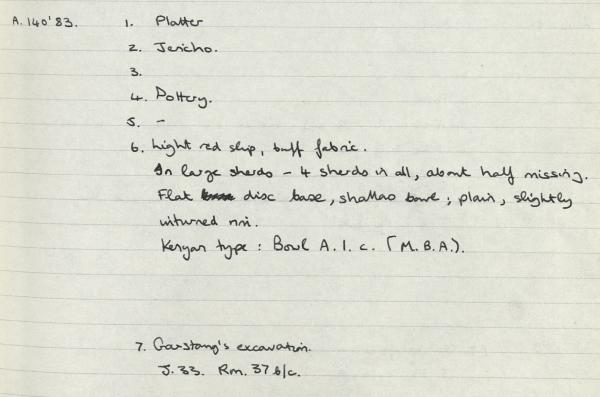 A. 140'83. 1. Platter
2. Jericho.
3.
4. Pottery.
5. -
6. Light red slip, buff fabric.
In large sherds - 4 sherds in all, about half missing.
Flat disc base, shallow bowl; plain, slightly
inturned rim.
Kenyon type: Bowl A.1.c. (M.B.A.).
7. Garstang's excavation.
J.33. Rm. 37 b/c.